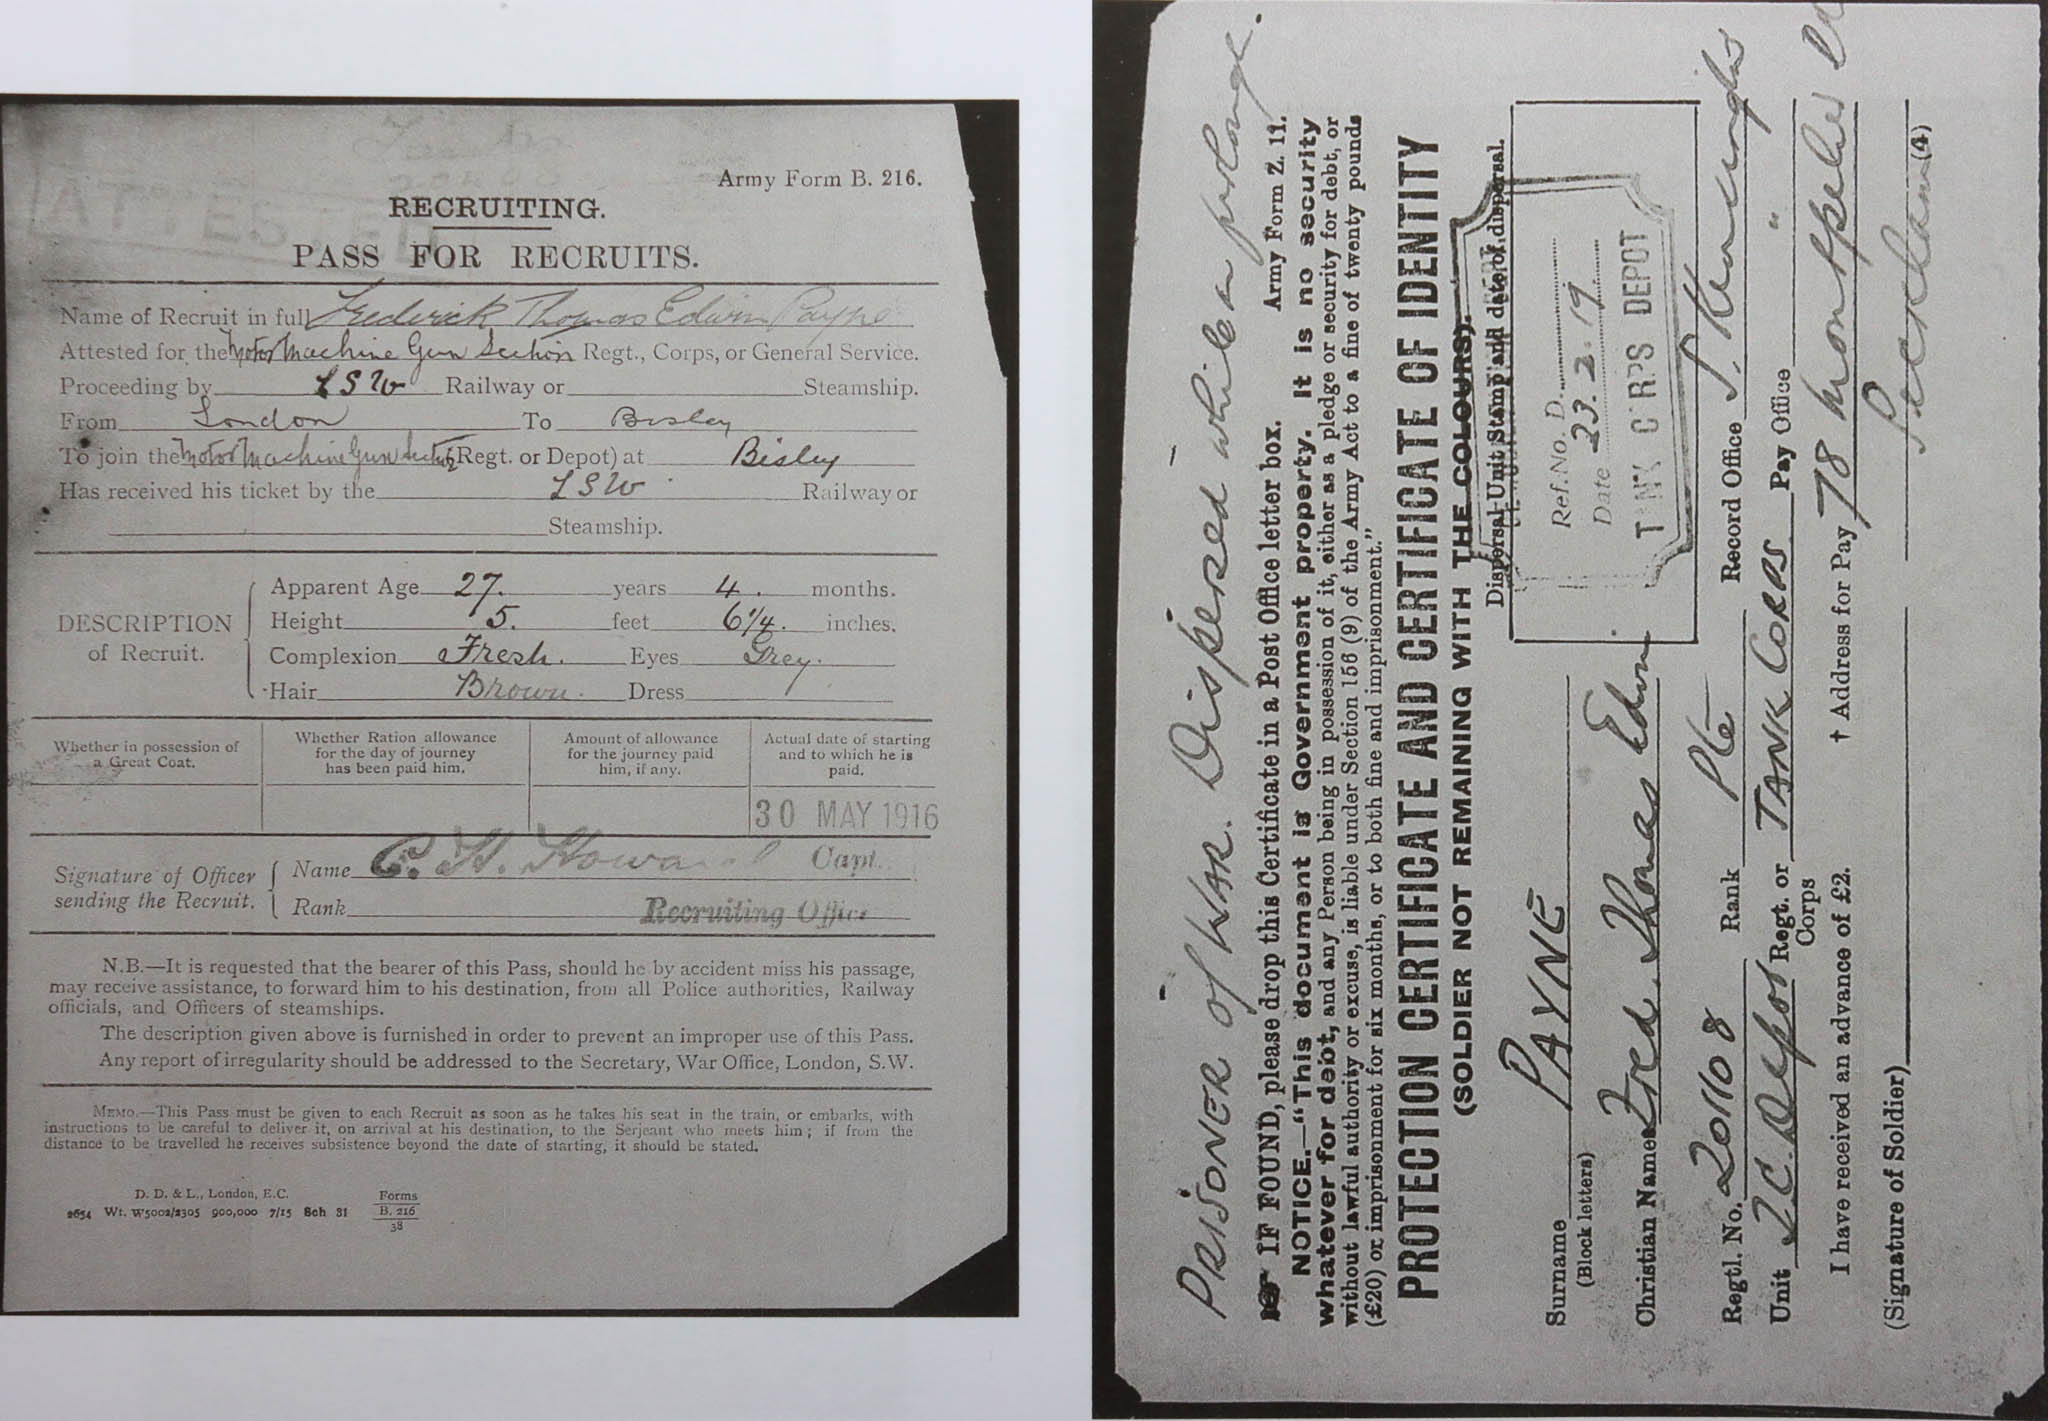 ATTESTED
Army Form B. 216.
RECRUITING.
PASS FOR RECRUITS.
Name of Recruit in full Frederick Thomas Edwin Payne
Attested for the Motor Machine Gun Section Regt., Corps, or General Service.
Proceeding by LSW Railway or Steamship.
From London To Bisley
To join the Motor Machine Gun Section (Regt. or Depot) at Bisley
Has received his ticket by the LSW Railway or
Steamship.
DESCRIPTION of Recruit.
Apparent Age 27. years 4. months.
Height 5. feet 6 1/4. inches.
Complexion Fresh. Eyes Grey.
Hair Brown. Dress
Whether in possession of a Great Coat.
Whether Ration allowance for the day of journey has been paid him.
Amount of allowance for the journey paid him, if any.
Actual date of starting and to which he is paid.
30 MAY 1916
Signature of Officer sending the Recruit.
Name C. H. Howard Capt.
Rank Recruiting Office
N.B.—It is requested that the bearer of this Pass, should he by accident miss his passage,
may receive assistance, to forward him to his destination, from all Police authorities, Railway
officials, and Officers of steamships.
The description given above is furnished in order to prevent an improper use of this Pass.
Any report of irregularity should be addressed to the Secretary, War Office, London, S.W.
MEMO.—This Pass must be given to each Recruit as soon as he takes his seat in the train, or embarks, with
instructions to be careful to deliver it, on arrival at his destination, to the Serjeant who meets him; if from the
distance to be travelled he receives subsistence beyond the date of starting, it should be stated.
D. D. & L., London, E.C.
2654 Wt. W5002/2305 900,000 7/15 Sch 31
Forms
B. 216
38
PRISONER of WAR. Dispersed while on furlough.
IF FOUND, please drop this Certificate in a Post Office letter box. Army Form Z. 11.
NOTICE.—"This document is Government property. It is no security
whatever for debt, and any Person being in possession of it, either as a pledge or security for debt, or
without lawful authority or excuse, is liable under Section 156 (9) of the Army Act to a fine of twenty pounds
(£20) or imprisonment for six months, or to both fine and imprisonment."
PROTECTION CERTIFICATE AND CERTIFICATE OF IDENTITY
(SOLDIER NOT REMAINING WITH THE COLOURS).
Dispersal Unit Stamp and date of dispersal.
Ref. No. D.
Date 23.2.19.
TANK CORPS DEPOT
Surname PAYNE
(Block letters)
Christian Names Fred Thomas Edwin
Regtl. No. 201108 Rank Pte Record Office
Unit T.C. Depot Regt. or Corps TANK CORPS Pay Office "
I have received an advance of £2. † Address for Pay 78
Peckham
(Signature of Soldier) (4)